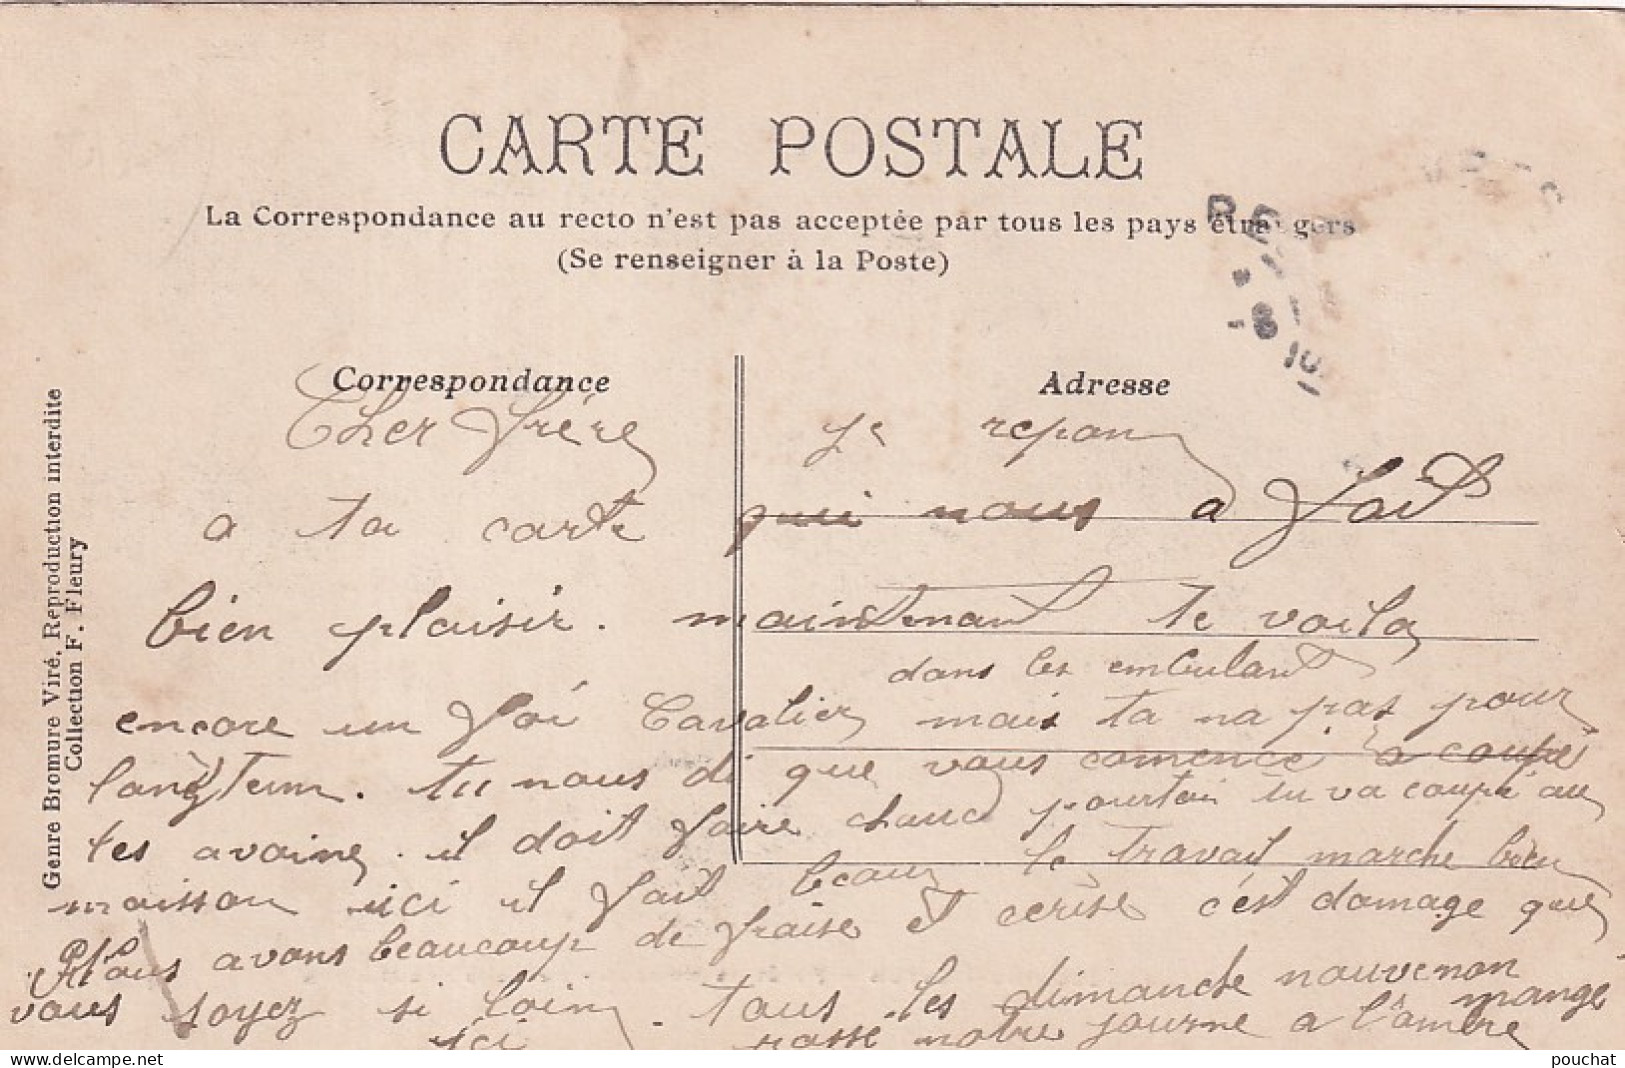 CARTE POSTALE
La Correspondance au recto n'est pas acceptée par tous les pays étrangers
(Se renseigner à la Poste)
Correspondance
Adresse
Genre Bromure Viré. Reproduction interdite
Collection F. Fleury
Cher frère Je repon
a ta carte qui nous a fait
bien plaisir. maintenant te voila
dans les embulant
encore un foi Cavalier mais ta na pas pour
langtem. tu nous di que vous comence a coupé
tes avaine. il doit faire chaud pourtan tu va coupé au
maisson ici il fait beau le travail marche bien
Nous avons beaucoup de fraise et cerise c'est damage que
vous soyez si loin. tous les dimanche nouvenon mangé
ici notre journe a l'ombre
pouchat